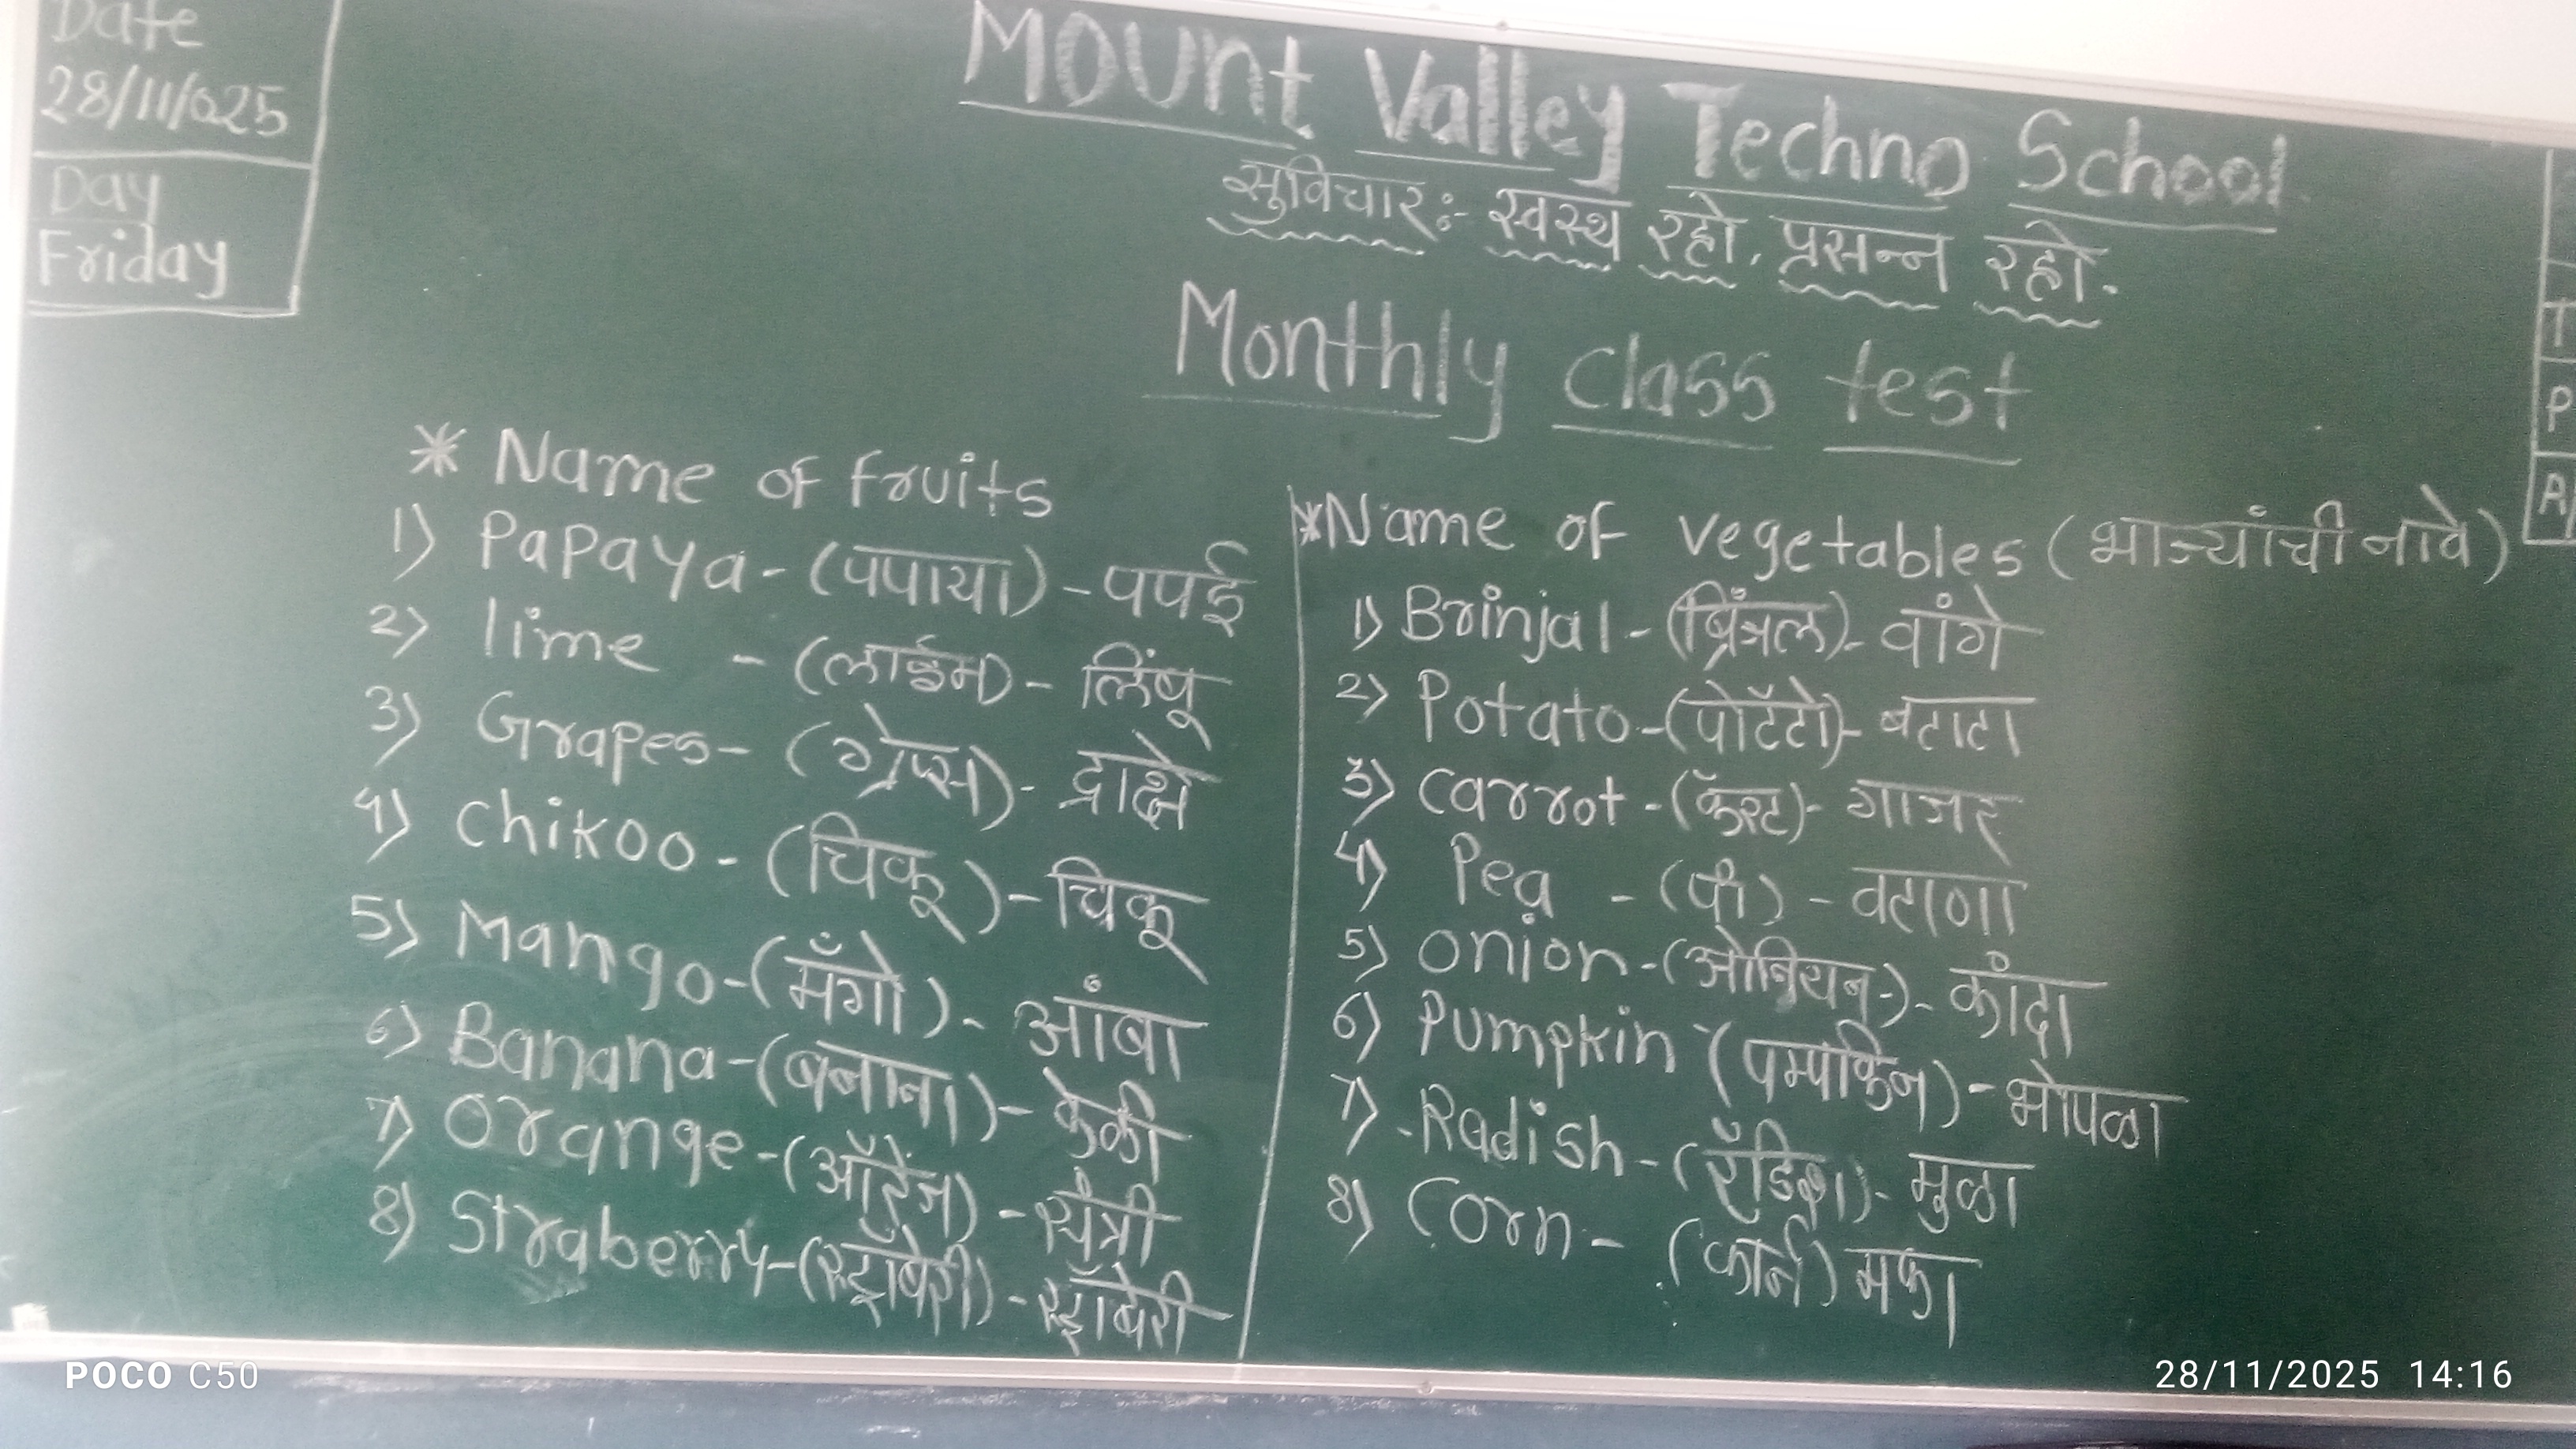 Date
28/11/025
Day
Friday
Mount Valley Techno School
सुविचार:- स्वस्थ रहो, प्रसन्न रहो.
Monthly class test
* Name of fruits
1) Papaya - (पपाया) - पपई
2) lime - (लाईम) - लिंबू
3) Grapes - (ग्रेप्स) - द्राक्षे
4) chikoo - (चिकू) - चिकू
5) Mango - (मँगो) - आंबा
6) Banana - (बनाना) - केळी
7) Orange - (ऑरेंज) - संत्री
8) Straberry - (स्ट्रॉबेरी) - स्ट्रॉबेरी
* Name of vegetables (भाज्यांची नावे)
1) Brinjal - (ब्रिंजल) - वांगे
2) Potato - (पोटॅटो) - बटाटा
3) carrot - (कॅरट) - गाजर
4) Pea - (पी) - वटाणा
5) onion - (ओनियन) - कांदा
6) Pumpkin - (पम्पकिन) - भोपळा
7) Radish - (रॅडिश) - मुळा
8) Corn - (कॉर्न) मका
T
P
A
POCO C50
28/11/2025 14:16